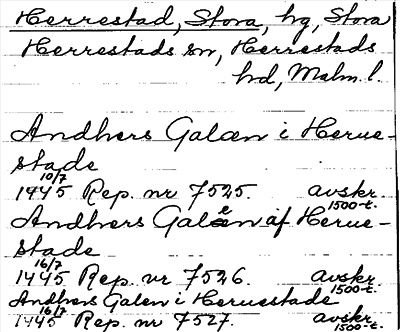 Herrestad, Stora, hg, Stora
Herrestads sn, Herrestads
hd, Malm. l.
Andhers Galæn i Herue-
stade
10/7
1445 Rep. nr 7525. avskr.
1500-t.
Andhers Galæn af Herue-
stade
16/7
1445 Rep. nr 7526. avskr.
1500-t.
Andhers Galen i Heruestade
16/7
1445 Rep. nr 7527. avskr.
1500-t.